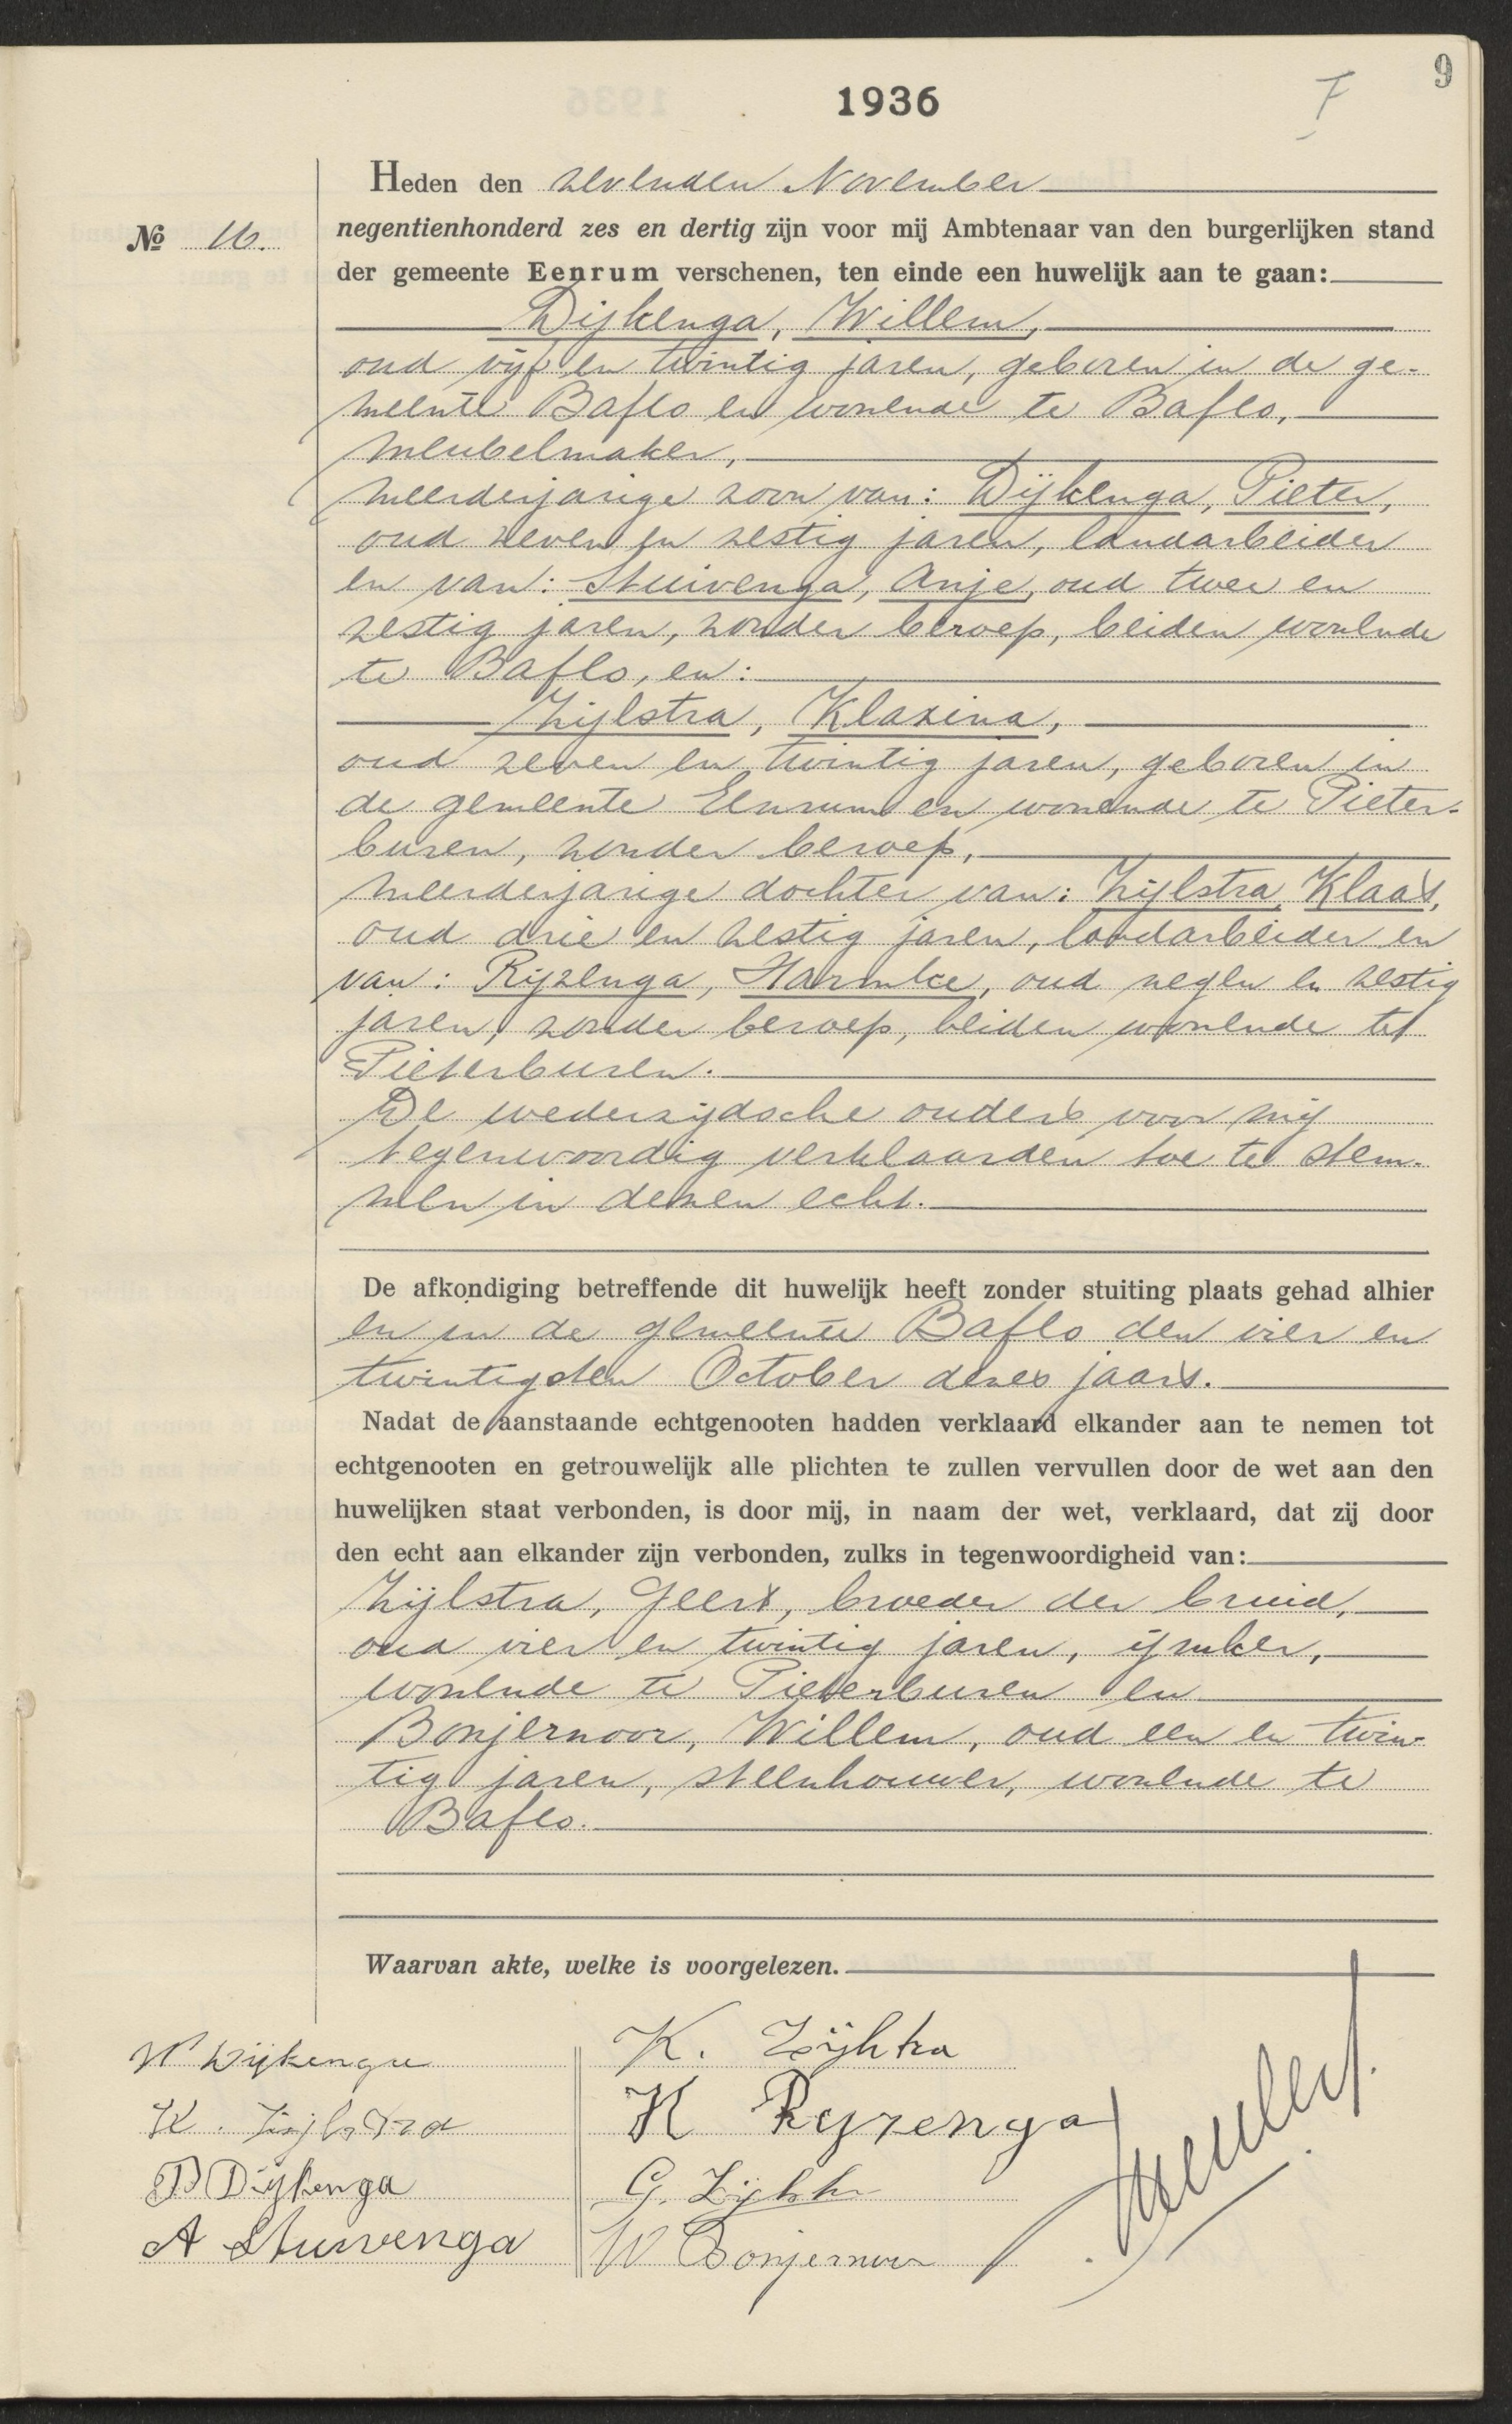 9
1936
7
Heden den zevenden November
№ 16.
negentienhonderd zes en dertig zijn voor mij Ambtenaar van den burgerlijken stand
der gemeente Eenrum verschenen, ten einde een huwelijk aan te gaan:
Dijkenga, Willem,
oud vijf en twintig jaren, geboren in de ge-
meente Baflo en wonende te Baflo,
meubelmaker,
meerderjarige zoon van: Dijkenga, Pieter,
oud zeven en zestig jaren, landarbeider
en van: Stuivenga, Anje, oud twee en
zestig jaren, zonder beroep, beiden wonende
te Baflo, en:
Zijlstra, Klaxina,
oud zeven en twintig jaren, geboren in
de gemeente Eenrum en wonende te Pieter-
buren, zonder beroep,
meerderjarige dochter van: Zijlstra, Klaas,
oud drie en zestig jaren, landarbeider en
van: Rijzenga, Harmke, oud negen en zestig
jaren, zonder beroep, beiden wonende te
Pieterburen.
De wederzijdsche ouders voor mij
tegenwoordig verklaarden toe te stem-
men in dezen echt.
De afkondiging betreffende dit huwelijk heeft zonder stuiting plaats gehad alhier
en in de gemeente Baflo den vier en
twintigsten October dezes jaars.
Nadat de aanstaande echtgenooten hadden verklaard elkander aan te nemen tot
echtgenooten en getrouwelijk alle plichten te zullen vervullen door de wet aan den
huwelijken staat verbonden, is door mij, in naam der wet, verklaard, dat zij door
den echt aan elkander zijn verbonden, zulks in tegenwoordigheid van:
Zijlstra, Geert, broeder der bruid,
oud vier en twintig jaren, ijmker,
wonende te Pieterburen en
Bonjernoor, Willem, oud een en twin-
tig jaren, steenhouwer, wonende te
Baflo.
Waarvan akte, welke is voorgelezen.
W Dijkenga
K. Zijlstra
P Dijkenga
A Stuivenga
K. Zijlstra
H Ryzenga
G. Zijlstra
W Bonjernoor